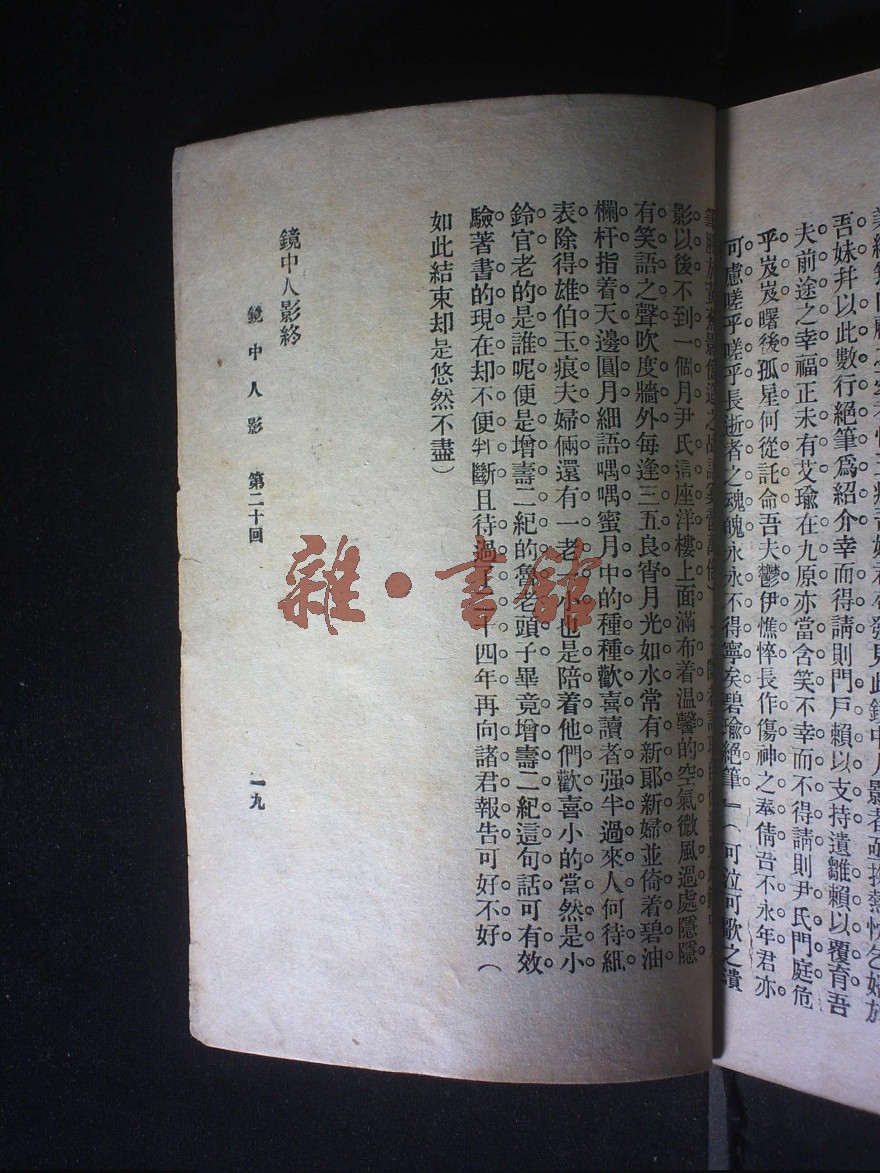 吾妹幷以此數行絕筆爲紹介幸而得請則門戶賴以支持遺雛賴以覆育吾
夫前途之幸福正未有艾瑜在九原亦當含笑不幸而不得請則尹氏門庭危
乎岌岌曙後孤星何從託命吾夫鬱伊憔悴長作傷神之奉倩吾不永年君亦
可慮嗟乎嗟乎長逝者之魂魄永永不得寧矣碧瑜絕筆」(可泣可歌之
影以後不到一個月尹氏這座洋樓上面滿布着溫馨的空氣微風過處隱隱
有笑語之聲吹度牆外每逢三五良宵月光如水常有新郞新婦並倚着碧油
欄杆指着天邊圓月細語喁喁蜜月中的種種歡喜讀者强半過來人何待細
表除得雄伯玉痕夫婦倆還有一老一小也是陪着他們歡喜小的當然是小
鈴官老的是誰呢便是增壽二紀的詹老頭子畢竟增壽二紀這句話可有效
驗著書的現在却不便判斷且待過了二十四年再向諸君報告可好不好(
如此結束却是悠然不盡)
鏡中人影終
鏡中人影 第二十回
一九
雜·書館